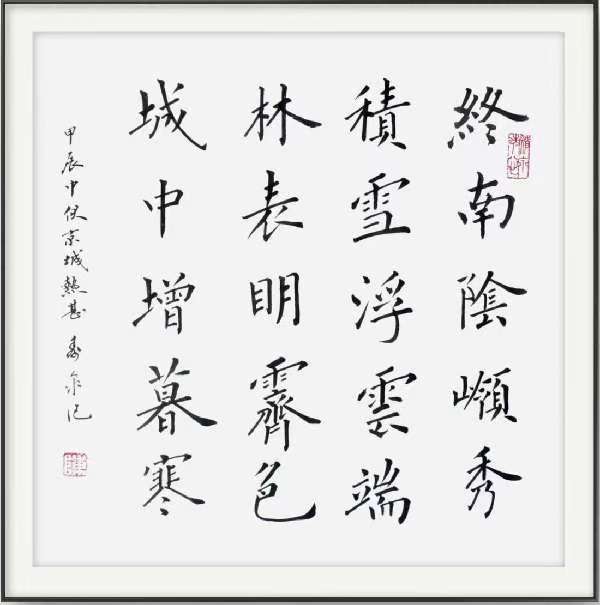 終南陰嶺秀
積雪浮雲端
林表明霽色
城中增暮寒
甲辰中伏京城熱甚 壽泉记